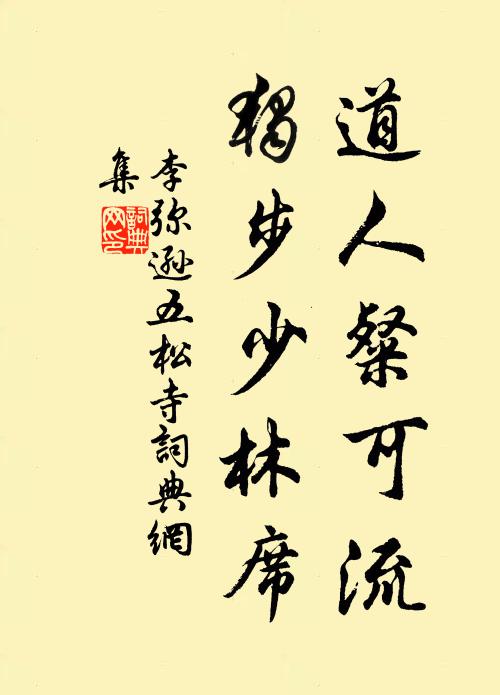 道人粲可流
獨步少林席
李弥遜五松寺詞典網
集
詞典网印